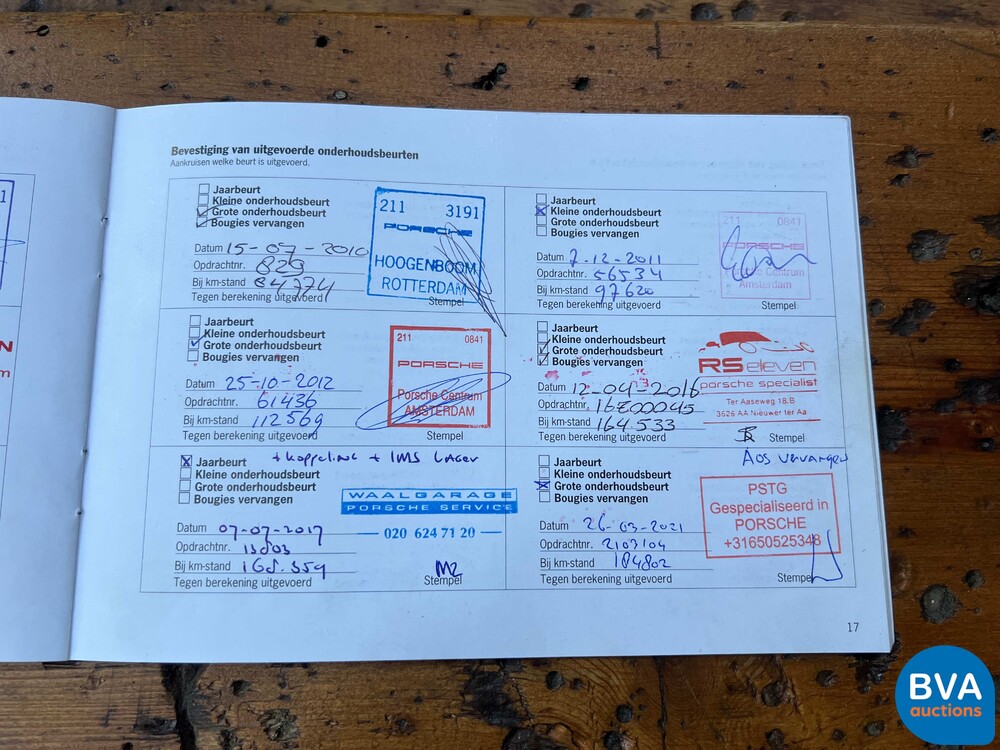 Bevestiging van uitgevoerde onderhoudsbeurten
Aankruisen welke beurt is uitgevoerd.
Jaarbeurt
Kleine onderhoudsbeurt
Grote onderhoudsbeurt
Bougies vervangen
Datum 15-07-2010
Opdrachtnr. 829
Bij km-stand 84774
Tegen berekening uitgevoerd
Stempel
211 3191
PORSCHE
HOOGENBOOM
ROTTERDAM
Jaarbeurt
Kleine onderhoudsbeurt
Grote onderhoudsbeurt
Bougies vervangen
Datum 7-12-2011
Opdrachtnr. 56534
Bij km-stand 97620
Tegen berekening uitgevoerd
Stempel
211 0841
PORSCHE
Porsche Centrum
Amsterdam
Jaarbeurt
Kleine onderhoudsbeurt
Grote onderhoudsbeurt
Bougies vervangen
Datum 25-10-2012
Opdrachtnr. 61436
Bij km-stand 112569
Tegen berekening uitgevoerd
Stempel
211 0841
PORSCHE
Porsche Centrum
AMSTERDAM
Jaarbeurt
Kleine onderhoudsbeurt
Grote onderhoudsbeurt
Bougies vervangen
Datum 12-04-2016
Opdrachtnr. 16200045
Bij km-stand 164.533
Tegen berekening uitgevoerd
Stempel
RS eleven
porsche specialist
Ter Aaseweg 18.B
3626 AA Nieuwer ter Aa
Jaarbeurt + koppeling + IMS Lager
Kleine onderhoudsbeurt
Grote onderhoudsbeurt
Bougies vervangen
Datum 07-07-2017
Opdrachtnr.
Bij km-stand 168.359
Tegen berekening uitgevoerd
Stempel
WAALGARAGE
PORSCHE SERVICE
020 624 71 20
Jaarbeurt
Kleine onderhoudsbeurt
Grote onderhoudsbeurt
Bougies vervangen
Datum 26-03-2021
Opdrachtnr. 2103104
Bij km-stand 184802
Tegen berekening uitgevoerd
Stempel
Aos vervangen
PSTG
Gespecialiseerd in
PORSCHE
+31650525348
17
BVA
auctions